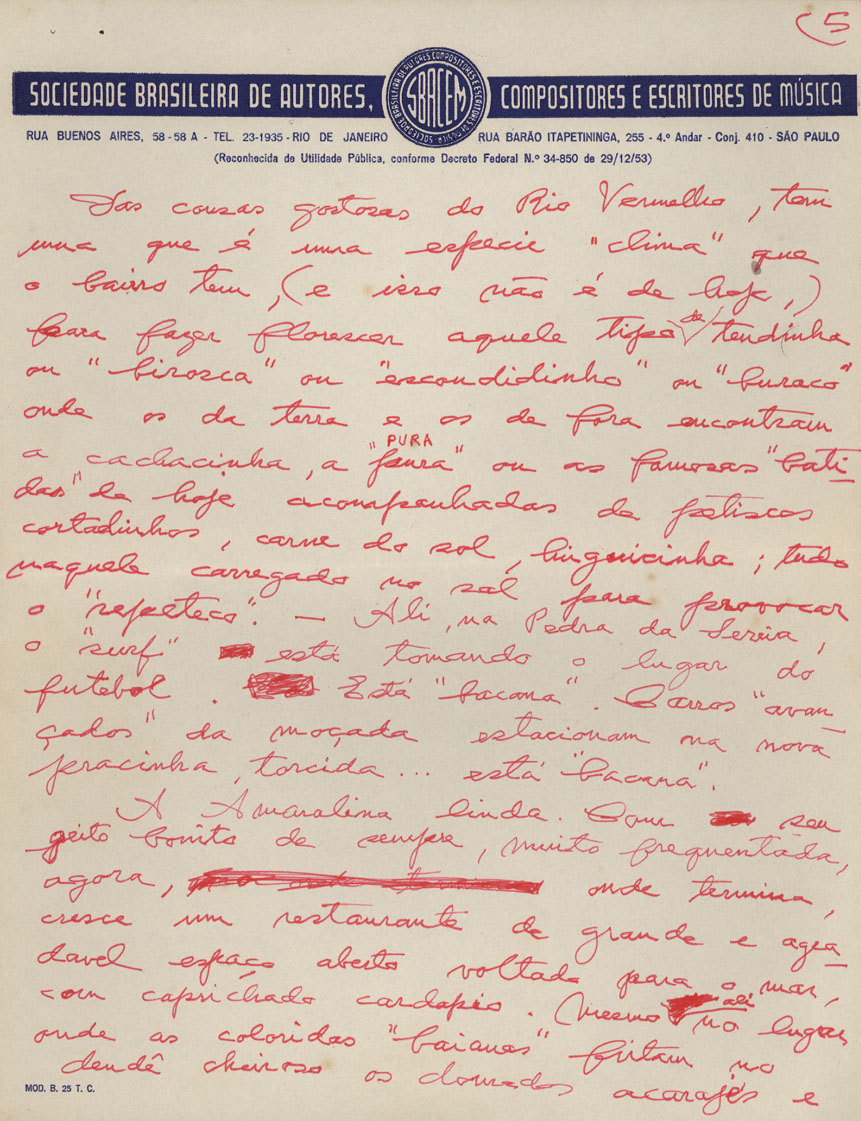 5
SOCIEDADE BRASILEIRA DE AUTORES, COMPOSITORES E ESCRITORES DE MÚSICA
SOCIEDADE BRASILEIRA DE AUTORES COMPOSITORES E ESCRITORES DE MÚSICA
SBACEM
RUA BUENOS AIRES, 58 - 58 A - TEL. 23-1935 - RIO DE JANEIRO RUA BARÃO ITAPETININGA, 255 - 4.º Andar - Conj. 410 - SÃO PAULO
(Reconhecida de Utilidade Pública, conforme Decreto Federal N.º 34-850 de 29/12/53)
Das cousas gostosas do Rio Vermelho, tem
uma que é uma especie "clima" que
o bairro tem, (e isso não é de hoje,)
para fazer florescer aquele tipo de tendinha
ou "birosca" ou "escondidinho" ou "buraco"
onde os da terra e os de fora encontram
PURA
a cachacinha, a "pura" ou as famosas "bati
das" de hoje acompanhadas de petiscos
cortadinhos, carne do sol, linguicinha; tudo
naquele carregado no sal para provocar
o "repeteco". — Ali, na Pedra da Sereia,
o "surf" está tomando o lugar do
futebol. Está "bacana". Carros "avan
çados" da moçada estacionam na nova
pracinha, torcida... está "bacana".
A Amaralina linda. Com seu
geito bonito de sempre, muito frequentada,
agora, onde termina,
cresce um restaurante de grande e agra
davel espaço aberto voltado para o mar,
com caprichado cardapio. Mesmo ali no lugar
onde as coloridas "baianas" fritam no
dendê cheiroso os dourados acarajés e
MOD. B. 25 T. C.